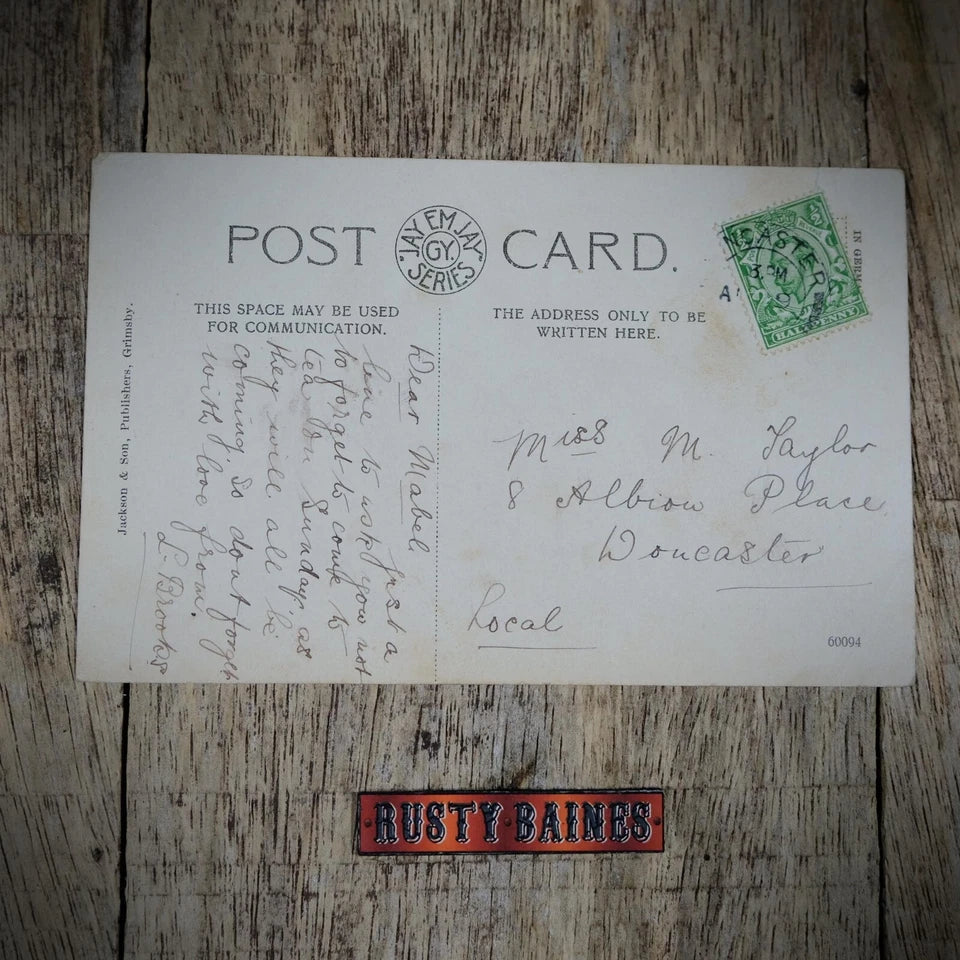 POST CARD.
"JAY EM JAY" GY. SERIES
THIS SPACE MAY BE USED
FOR COMMUNICATION.
THE ADDRESS ONLY TO BE
WRITTEN HERE.
Jackson & Son, Publishers, Grimsby.
Dear Mabel.
Just a
line to ask you not
to forget to come to
tea on Sunday, as
they will all be
coming, so dont forget
with love from.
L. Brooks
Miss M. Taylor
8 Albion Place
Doncaster
Local
60094
IN GERM
NCASTER
3 PM
HALFPENNY
RUSTY BAINES